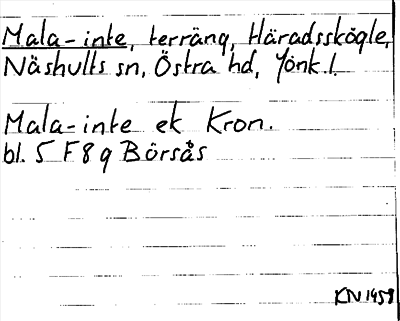 Mala-inte, terräng, Häradsskögle,
Näshults sn, Östra hd, Jönk.l.
Mala-inte ek Kron.
bl. 5 F 8 g Börsås
KN 1958